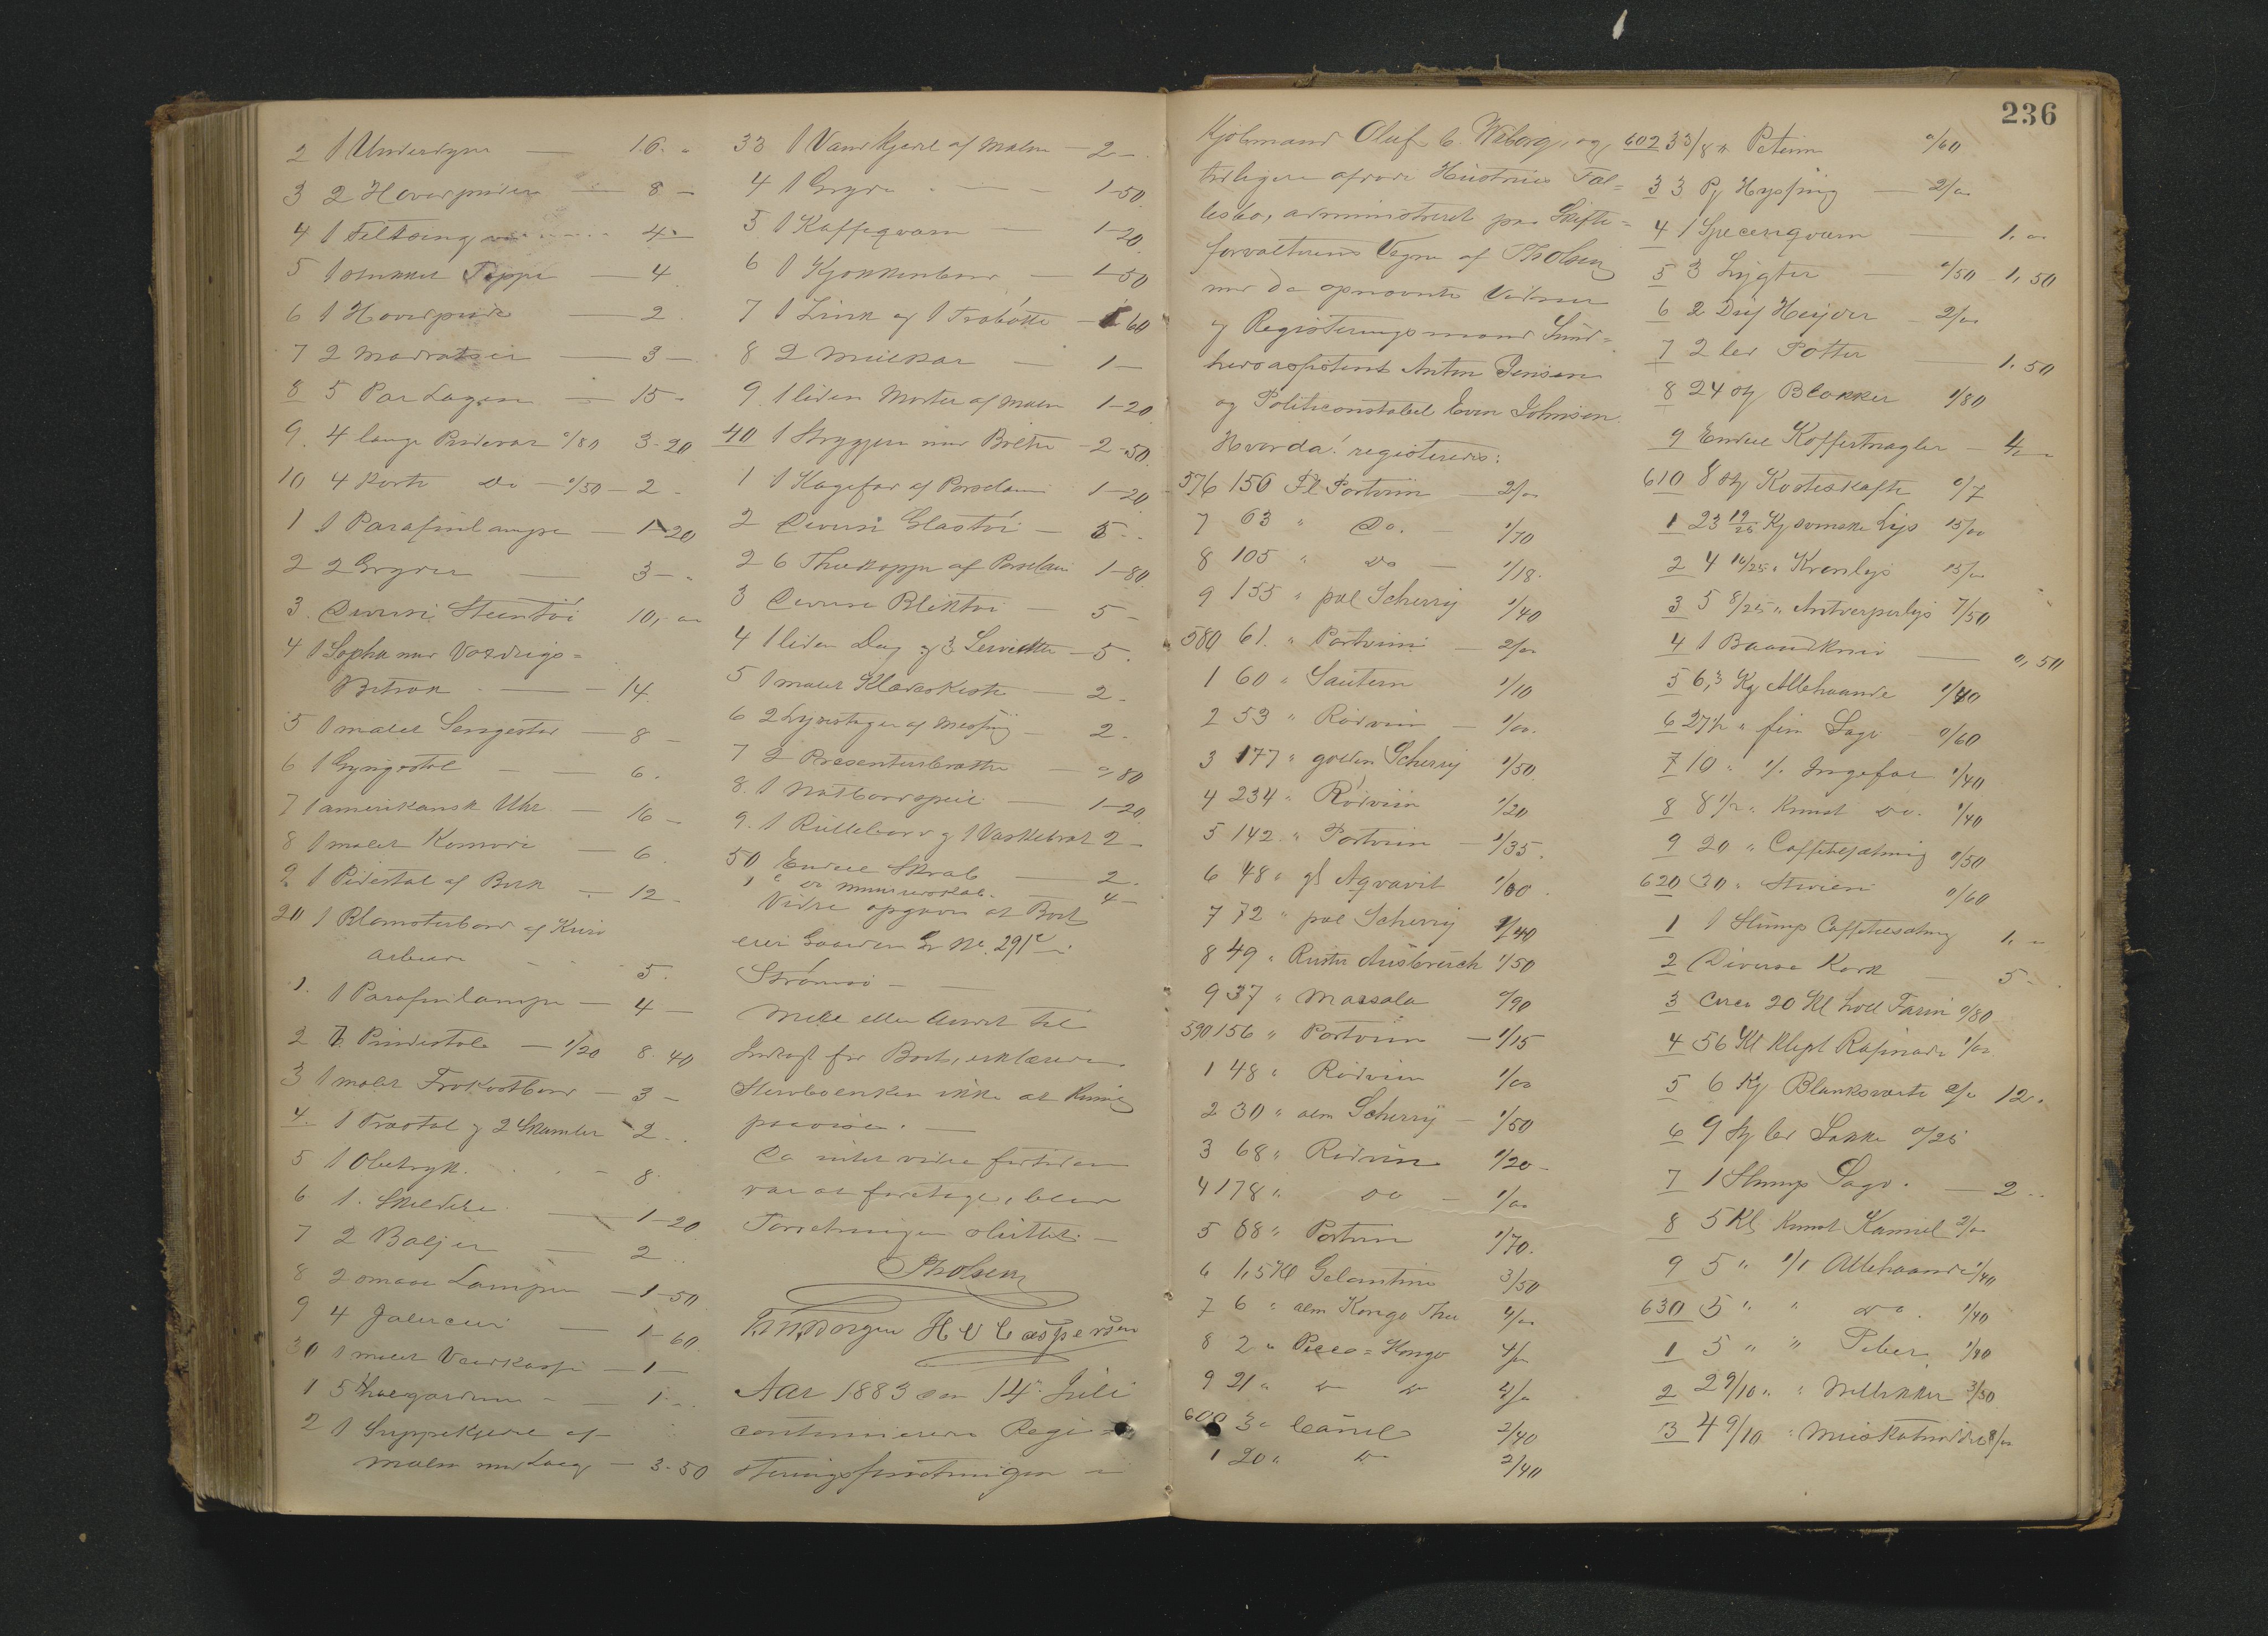 2 1 Underdyne — 16 "
3 2 Hovedpuder — 8 —
4 1 Feltseng 4 —
5 1 Teppe — 4
6 1 Hovedpude — 2
7 2 Madratser — 3 —
8 5 Par Lagen — 15 -
9. 4 lange Pudevar 0/80 3-20
10 4 korte Do — 0/50 — 2 -
1 1 Parafinlampe — 1-20
2 2 Gryder — 3 - "
3. Diverse Steentøi 10,
4 1 Sopha med Voxdugs=
Betræk — 14.
5 1 malet Sengested — 8 —
6 1 Gyngestol — 6.
7 1 amerikansk Uhr — 16 —
8 1 malet Komode — 6
9 1 Pidestal af Birk — 12 -
20 1 Blomsterbord af Kurv
arbeide 5.
1. 1 Parafinlampe — 4 —
2 7 Pindestole — 1/20 8-40
3 1 malet Frokostbord — 3 —
4. 1 Træstol og 2 Skamler 2 -
5 1 Olietryk 8
6 1 Skilderi 1-20
7 2 Baljer — 2
8 2 smaa Lamper — 1-50
9 4 Jalucier — 1-60
30 1 malet — 1 —
1 5 — 1 -
2 1 Suppekjedel af
Malm med Laag — 3-50
33 1 Vandkjedel af Malm — 2 —
4 1 Gryde — 1-50
5 1 Kaffeqværn — 1-20
6 1 Kjøkkenbord — 1-50
7 1 Zink og 1 Træbøtte — 60
8 2 — 1 —
9. 1 liden Morter af Malm 1-20
40 1 Strygejern med Bolter — 2-50
1 1 Kagefad af Porselain 1-20
2 Diverse Glastøi — 5 -
2 6 Theekopper af Porselain 1-80
3 Diverse Bliktøi — 5 -
4 1 liden Dug og 3 Servietter — 5.
5 1 malet Klædeskiste — 2 -
6 2 Lysestager af Messing — 2 -
7 2 Presenterbrætter — 0 80
8. 1 Natbordspeil — 1-20
9. 1 Rullebord og 1 Vaskebræt 2 —
50 Endeel Skrab — 2 -
1 " do 4 —
Videre opgaves at Boet
eier Gaarden Gr No. 291c i
Strømsø —
Midler eller andet til
Indtægt for Boet, erklærede
Sterboenken ikke at kunne
paavise. —
Da intet videre fortiden
var at foretage, blev
Forretningen sluttet. —
Th Olsen
H C Caspersen
Aar 1883 den 14de Juli
continuerede Regi=
streringsforretningen i
236
Kjøbmand Oluf C. Wiborg, og
tidligere afdøde Hustrues Fæl=
lesbo, administreret paa Skifte=
forvalterens Vegne af Th Olsen
med de opnævnte Vidner
og Registreringsmænd
Anton Jensen
og Politiconstabel Even Johnsen.
Hvorda registreredes:
576 150 Fl Portviin — 2/00
7 63 " Do. — 1/70
8 105 " do — 1/18.
9 155 " pal Scherry 1/40
580 61. " Portviin — 2/00
1 60 " Sautern 1/10
2 53 " Rødviin — 1/00.
3 177 " golden Scherry 1/50
4 234 " Rødviin 1/20
5 142. " Portviin — 1/35.
6 48 " gl Aqvavit 1/00.
7 72 " pal Scherry 1/40
8 49 " Ruster Ausbruch 1/50
9 37 " Marsala 0/90
590 156 " Portviin — 1/15
1 48 " Rødviin 1/00
2 30 " alm Scherry — 1/50
3 68 " Rødviin 1/20 -
4 178 " do — 1/00
5 68 " Portviin 1/70.
6 1,5 Kl Gelantine 3/50
7 6 " alm Kongo Thee 4/00
8 2 " Pecco=Kongo 4/00
9 21 " do do 4/00
600 3 " Canel 2/40
1 20 " do 2/40
602 33/8 " 0/60
3 3 Pj Hyssing — 2/00
4 1 Speceriqværn — 1,00
5 3 Lygter — 0/50 1,50
6 2 2/00
7 2 led Potter 1.50
8 24 Blokker 1/80
9 Endeel Koffertnagler — 4,
610 8 Kosteskafte 0/7
1 23 19/25 Kg svenske Lys 15/00
2 4 16/25 " Kronlys 15/00
3 5 8/25 " Antverperlys 7/50
4 1 Baandkniv — 0,50
5 6,3 Kg Allehaande 1/40
6 27½ " fin Sago — 0/60
7 10 " 1/1 Ingefær 1/40
8 8½ " knust do. 1/40
9 20 " Caffetilsætning 0/50
620 30 " Stivelse 0/60
1 1 Slump Caffetilsætning 1,
2 Diverse Kork — 5 -
3 Circa 20 Kl holl Farin 0/80
4 56 Kl klipt Rafinade 1/00
5 6 Kg Blanksværte 2/00 12.
6 9 0/25
7 1 Slump Sago. — 2 -
8 5 Kl knust Kannel 2/00
9 5 " 1/1 Allehaande 1/40
630 5 " " do. 1/40
1 5 " " Peber 1/40
2 2 9/10 " " Nelliker 3/50
3 4 9/10 " Muskatnødder 8/00